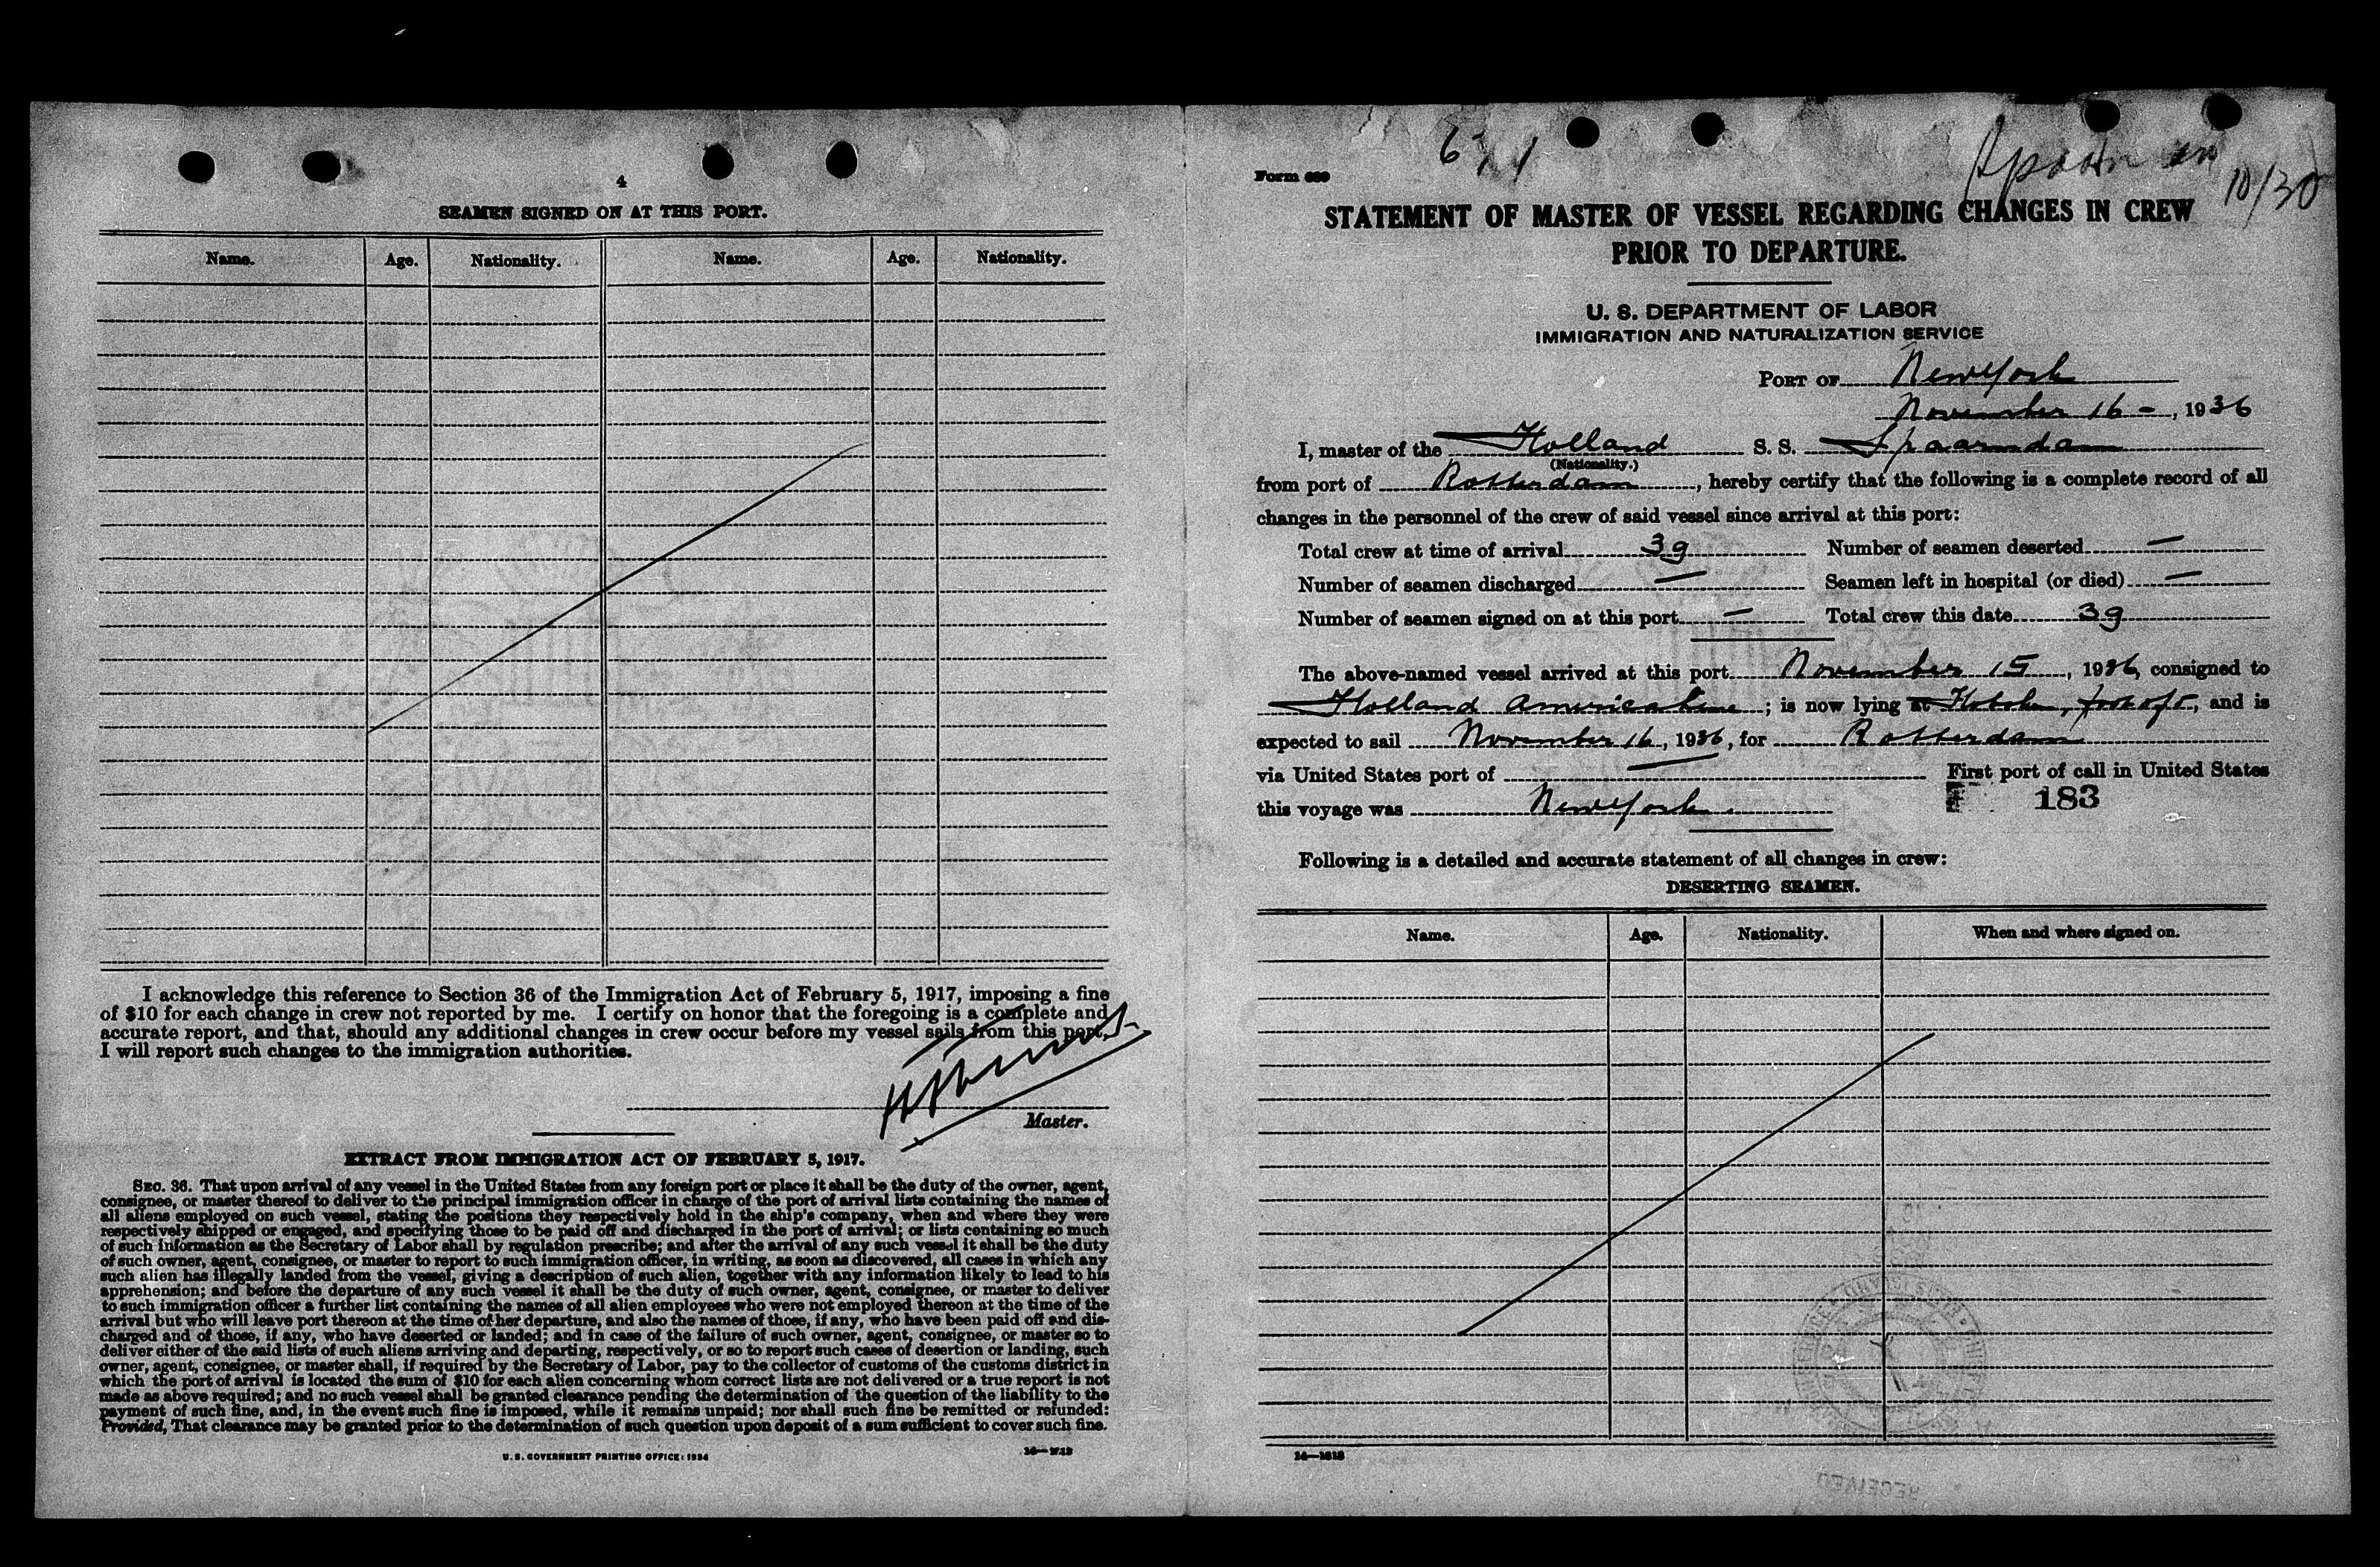 4
SEAMEN SIGNED ON AT THIS PORT.
Name. Age. Nationality. Name. Age. Nationality.
I acknowledge this reference to Section 36 of the Immigration Act of February 5, 1917, imposing a fine
of $10 for each change in crew not reported by me. I certify on honor that the foregoing is a complete and
accurate report, and that, should any additional changes in crew occur before my vessel sails from this port,
I will report such changes to the immigration authorities.
Master.
EXTRACT FROM IMMIGRATION ACT OF FEBRUARY 5, 1917.
SEC. 36. That upon arrival of any vessel in the United States from any foreign port or place it shall be the duty of the owner, agent,
consignee, or master thereof to deliver to the principal immigration officer in charge of the port of arrival lists containing the names of
all aliens employed on such vessel, stating the positions they respectively hold in the ship's company, when and where they were
respectively shipped or engaged, and specifying those to be paid off and discharged in the port of arrival; or lists containing so much
of such information as the Secretary of Labor shall by regulation prescribe; and after the arrival of any such vessel it shall be the duty
of such owner, agent, consignee, or master to report to such immigration officer, in writing, as soon as discovered, all cases in which any
such alien has illegally landed from the vessel, giving a description of such alien, together with any information likely to lead to his
apprehension; and before the departure of any such vessel it shall be the duty of such owner, agent, consignee, or master to deliver
to such immigration officer a further list containing the names of all alien employees who were not employed thereon at the time of the
arrival but who will leave port thereon at the time of her departure, and also the names of those, if any, who have been paid off and dis-
charged and of those, if any, who have deserted or landed; and in case of the failure of such owner, agent, consignee, or master so to
deliver either of the said lists of such aliens arriving and departing, respectively, or so to report such cases of desertion or landing, such
owner, agent, consignee, or master shall, if required by the Secretary of Labor, pay to the collector of customs of the customs district in
which the port of arrival is located the sum of $10 for each alien concerning whom correct lists are not delivered or a true report is not
made as above required; and no such vessel shall be granted clearance pending the determination of the question of the liability to the
payment of such fine, and, in the event such fine is imposed, while it remains unpaid; nor shall such fine be remitted or refunded:
Provided, That clearance may be granted prior to the determination of such question upon deposit of a sum sufficient to cover such fine.
U. S. GOVERNMENT PRINTING OFFICE: 1934
Form 689
10/30
STATEMENT OF MASTER OF VESSEL REGARDING CHANGES IN CREW
PRIOR TO DEPARTURE.
U. S. DEPARTMENT OF LABOR
IMMIGRATION AND NATURALIZATION SERVICE
PORT OF New York
November 16 -, 1936
I, master of the Holland S. S. Spaarndam
(Nationality.)
from port of Rotterdam, hereby certify that the following is a complete record of all
changes in the personnel of the crew of said vessel since arrival at this port:
Total crew at time of arrival 39 Number of seamen deserted —
Number of seamen discharged — Seamen left in hospital (or died) —
Number of seamen signed on at this port — Total crew this date 39
The above-named vessel arrived at this port November 15, 1936, consigned to
Holland America Line; is now lying at Hoboken, foot of 5, and is
expected to sail November 16, 1936, for Rotterdam
via United States port of — First port of call in United States
this voyage was New York. 183
Following is a detailed and accurate statement of all changes in crew:
DESERTING SEAMEN.
Name. Age. Nationality. When and where signed on.
RECEIVED